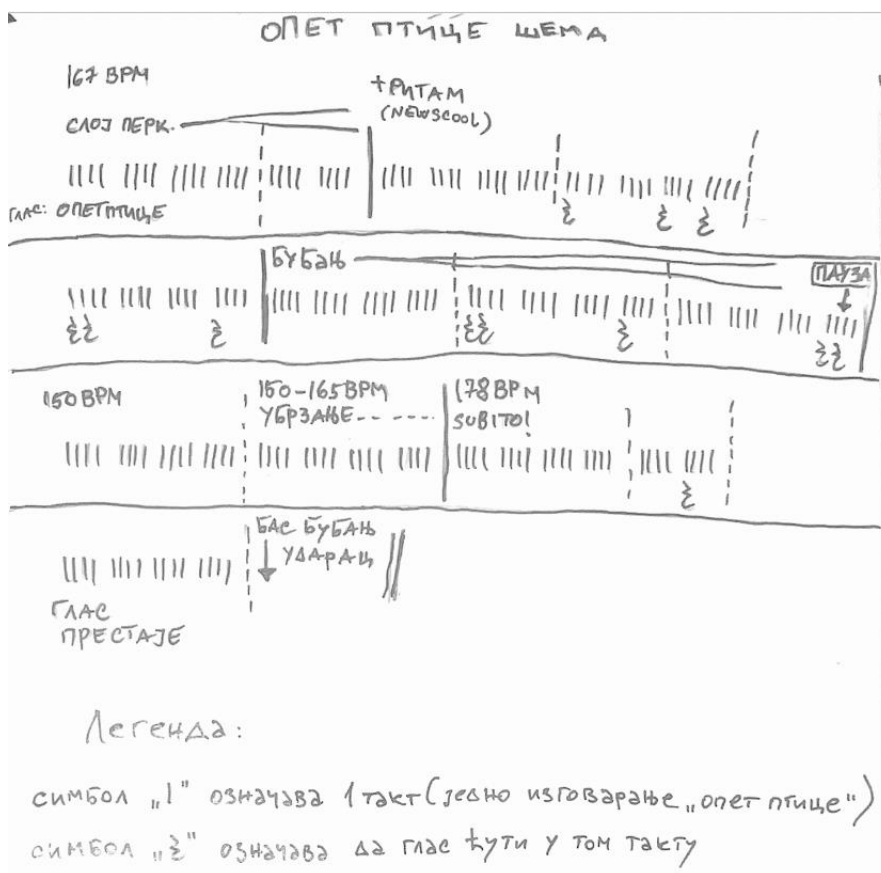 ОПЕТ ПТИЦЕ ШЕМА
167 BPM
СЛОЈ ПЕРК.
+РИТАМ
(NEWSCOOL)
ГЛАС: ОПЕТ ПТИЦЕ
БУБАЊ
ПАУЗА
150 BPM
150-165 BPM
УБРЗАЊЕ
178 BPM
SUBITO!
БАС БУБАЊ
УДАРАЦ
ГЛАС
ПРЕСТАЈЕ
Легенда:
СИМБОЛ „|" ОЗНАЧАВА 1 ТАКТ (ЈЕДНО ИЗГОВАРАЊЕ „ОПЕТ ПТИЦЕ")
СИМБОЛ „ξ" ОЗНАЧАВА ДА ГЛАС ЋУТИ У ТОМ ТАКТУ